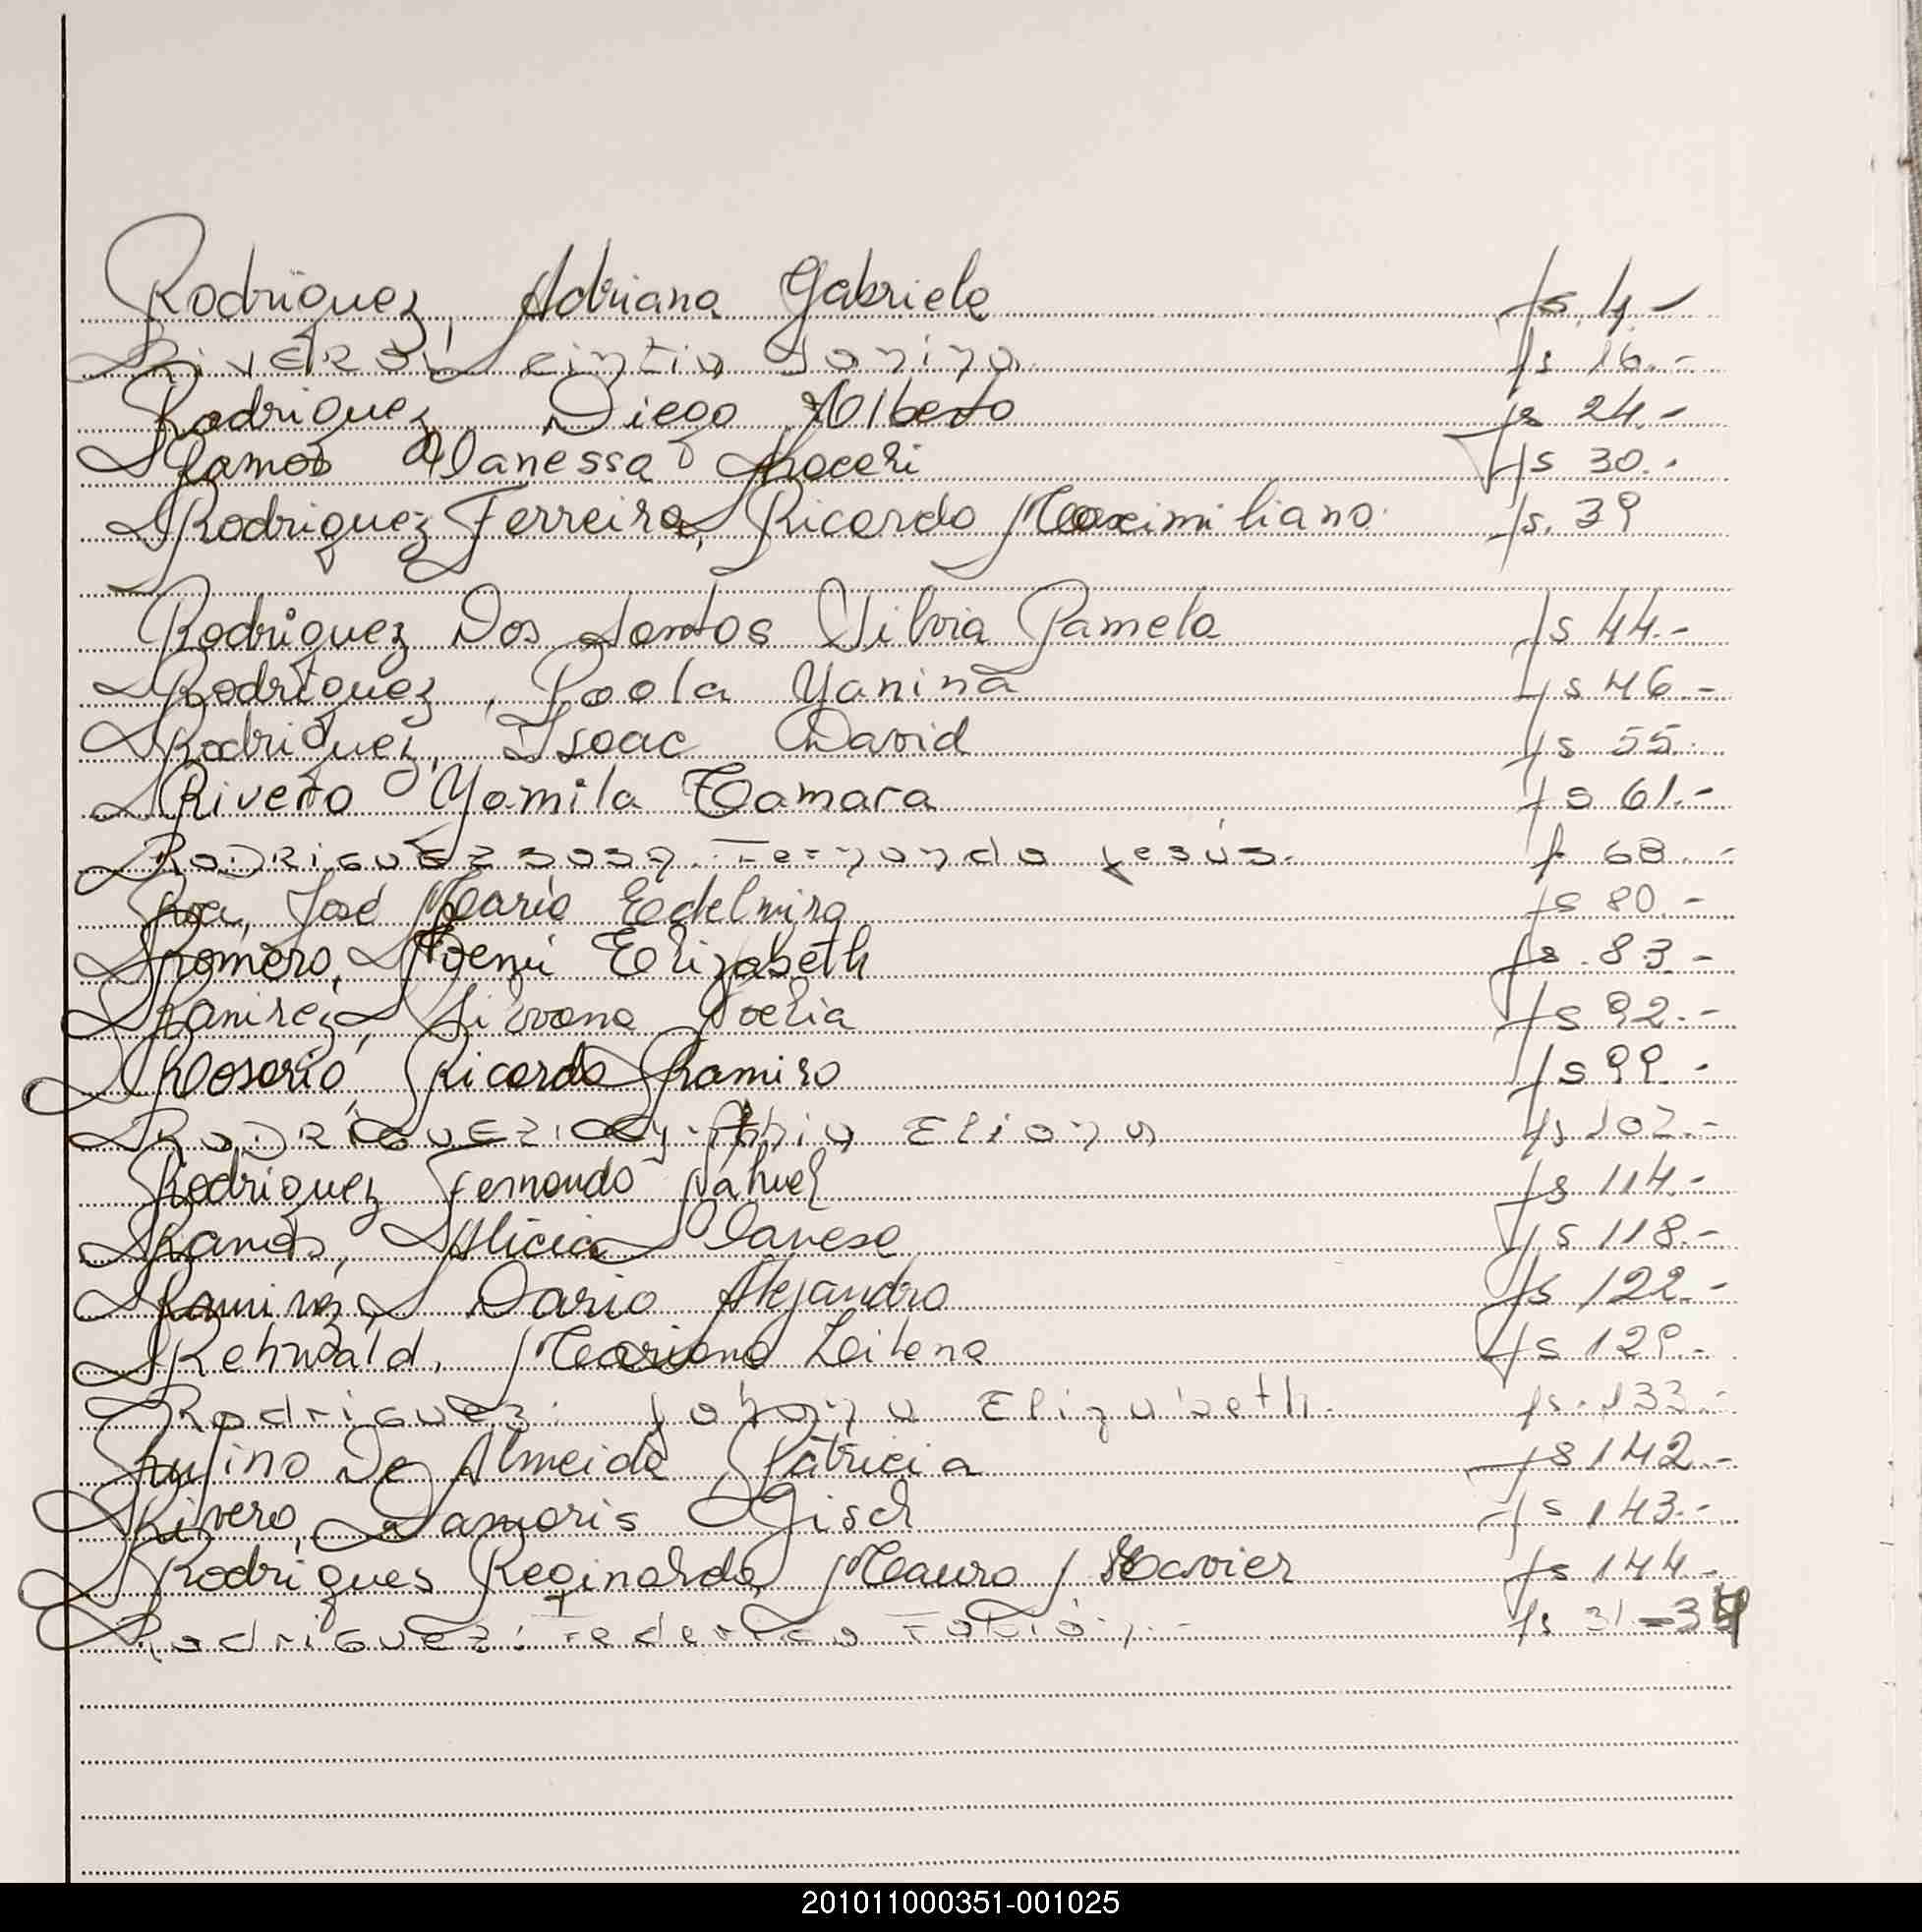 Rodriguez, Adriana Gabriela fs. 4.-
Rivero, Cintia Yanina. fs 16.-
Rodriguez Diego Alberto fs 24.-
Ramos Vanessa Araceli fs 30.-
Rodriguez Ferreira, Ricardo Maximiliano. fs. 39
Rodriguez Dos Santos Silvia Pamela fs 44.-
Rodriguez, Paola Yanina fs 46.-
Rodriguez, Isaac David fs 55.
Rivero Yamila Tamara fs 61.-
Rodriguez Sosa. Fernando Jesús. f 68.-
José María Edelmira fs 80.-
Romero, Noemi Elizabeth fs. 83.-
Ramirez, Silvana Noelia fs 92.-
Rosario, Ricardo Ramiro fs 99.-
Rodriguez: Eliana fs 102.-
Rodriguez Fernando Nahuel fs 114.-
Ramos, Alicia Vanesa fs 118.-
Ramirez, Dario Alejandro fs 122.-
Rehwald, Mariana Lilena fs 129.-
Rodriguez: Johana Elizabeth. fs. 133.-
Rufino De Almeida Patricia fs 142.-
Rivero, Damaris Gisel fs 143.-
Rodrigues Reginaldo, Mauro Xavier fs 144.-
Rodriguez: Federico Fabián.- fs 31-34
201011000351-001025